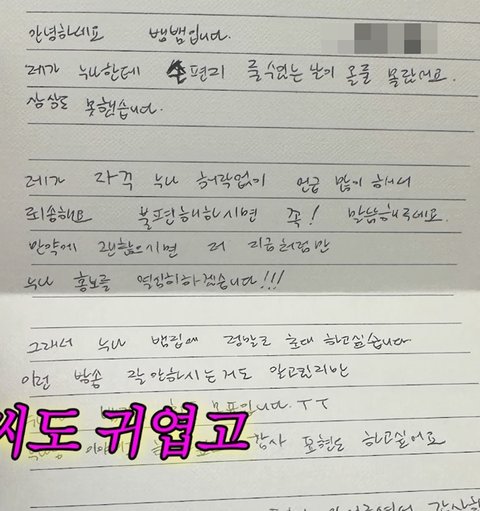 안녕하세요 뱀뱀입니다.
제가 누나한테 손편지 줄수있는 날이 올줄 몰랐네요.
상상도 못했습니다.
제가 자꾸 누나 허락없이 언급 많이 해서
죄송해요 불편해하시면 꼭! 말씀해주세요.
만약에 괜찮으시면 저 지금처럼만
누나 홍보를 열심히하겠습니다!!!
그래서 누나 뱀집에 정말로 초대 하고싶습니다
이런 방송 잘안하시는거도 알고있지만
입니다. ㅜㅜ
씨도 귀엽고
감사 표현도 하고싶어요